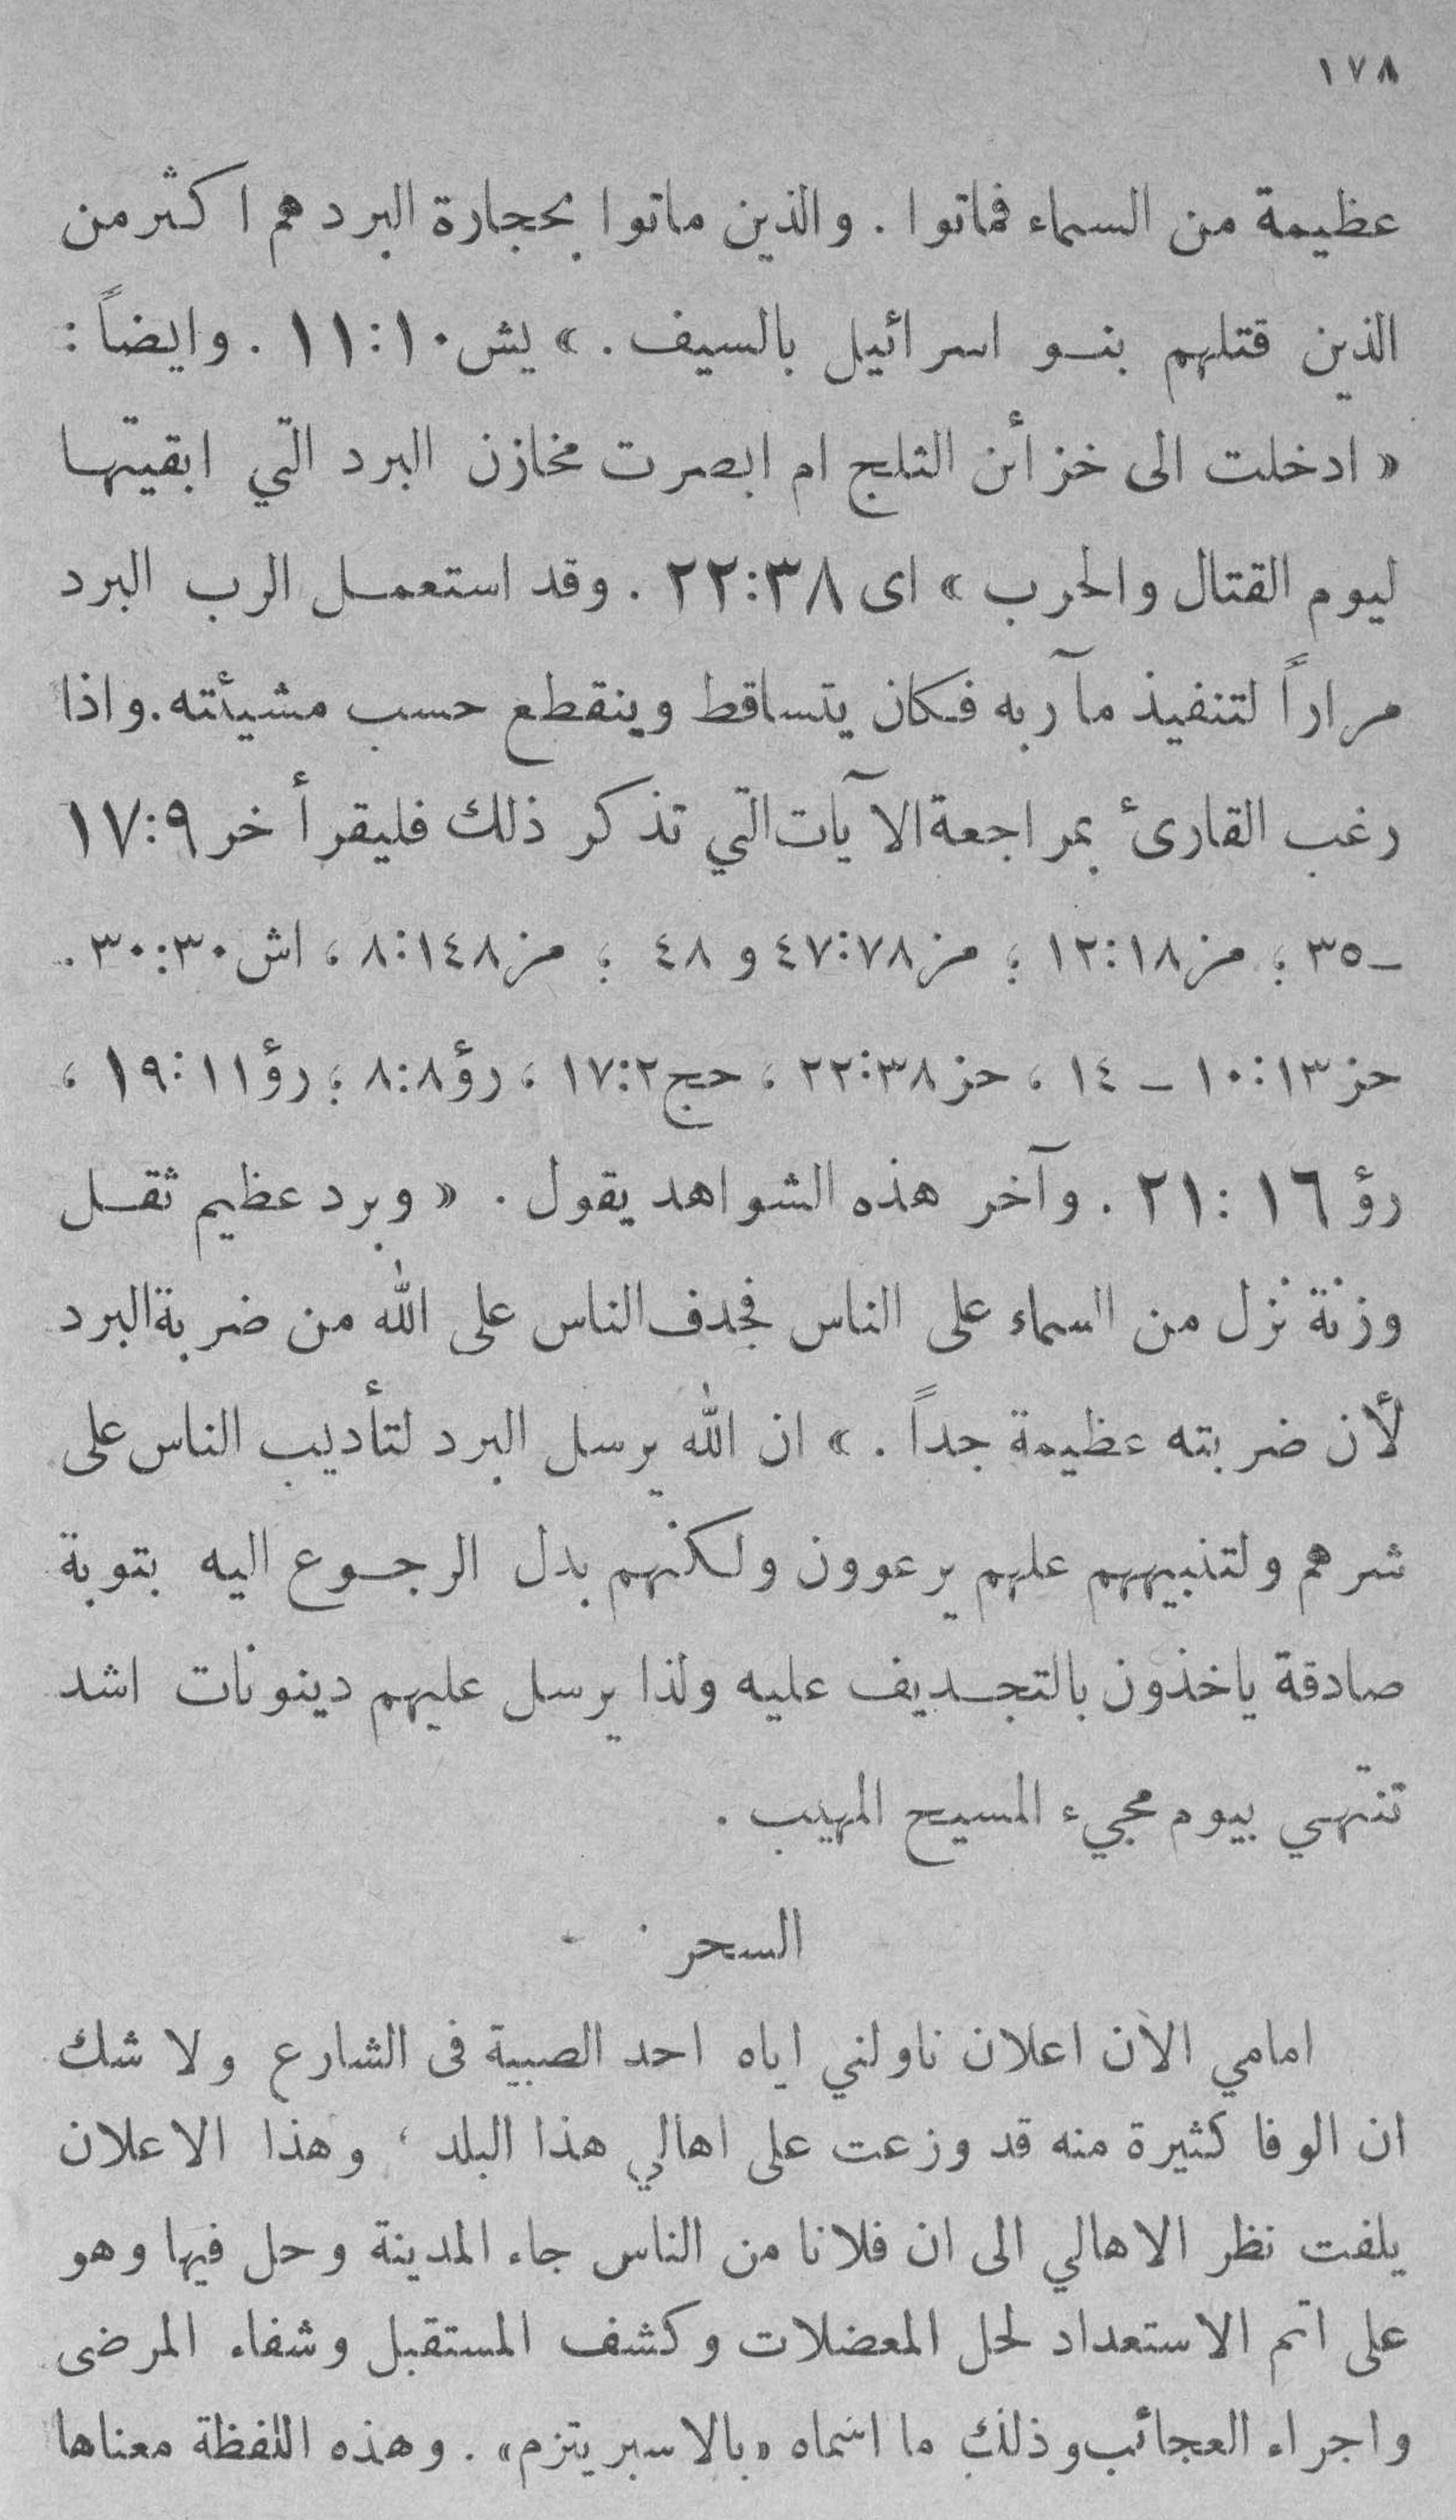 ١٧٨
عظيمة من السماء فماتوا . والذين ماتوا بحجارة البرد هم اكثر من
الذين قتلهم بنو اسرائيل بالسيف . » يش ١٠:١١ . وايضاً :
« ادخلت الى خزأئن الثلج ام ابصرت مخازن البرد التي ابقيتها
ليوم القتال والحرب » اى ٣٨:٢٢ . وقد استعمل الرب البرد
مراراً لتنفيذ مآربه فكان يتساقط وينقطع حسب مشيئته . واذا
رغب القارئ بمراجعة الآيات التي تذكر ذلك فليقرأ خر ٩:١٧
ـ ٣٥ ؛ مز ١٨:١٢ ؛ مز ٧٨:٤٧ و ٤٨ ؛ مز ١٤٨:٨ ، اش ٣٠:٣٠ .
حز ١٣:١٠ ـ ١٤ ، حز ٣٨:٢٢ ، حج ٢:١٧ ، رؤ ٨:٨ ؛ رؤ ١١:١٩ ،
رؤ ١٦:٢١ . وآخر هذه الشواهد يقول . « وبرد عظيم ثقل
وزنة نزل من السماء على الناس فجدف الناس على الله من ضربة البرد
لأن ضربته عظيمة جداً . » ان الله يرسل البرد لتأديب الناس على
شرهم ولتنبيههم علهم يرعوون ولكنهم بدل الرجوع اليه بتوبة
صادقة ياخذون بالتجديف عليه ولذا يرسل عليهم دينونات اشد
تنتهي بيوم مجيء المسيح المهيب .
السحر
امامي الآن اعلان ناولني اياه احد الصبية فى الشارع ولا شك
ان الوفا كثيرة منه قد وزعت على اهالي هذا البلد ، وهذا الاعلان
يلفت نظر الاهالي الى ان فلانا من الناس جاء المدينة وحل فيها وهو
على اتم الاستعداد لحل المعضلات وكشف المستقبل وشفاء المرضى
واجراء العجائب وذلك ما اسماه « بالاسبريتزم » . وهذه اللفظة معناها